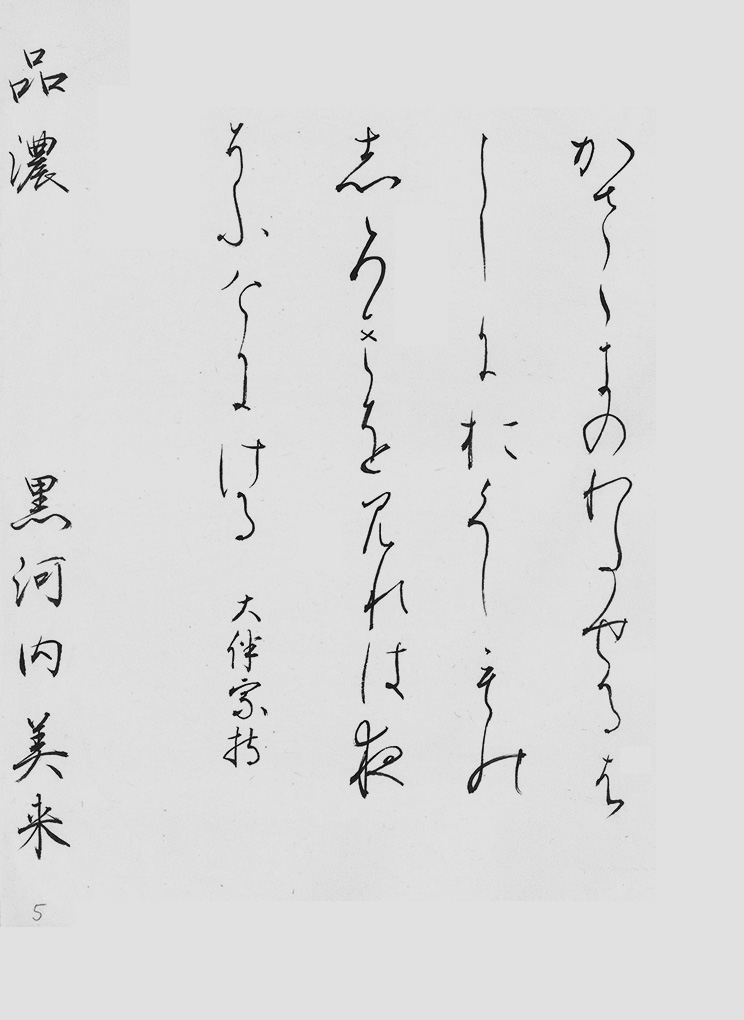 かさゝきのわたせるは
しにおくしも能
志ろきを見れは夜
そふけにける 大伴家持
品濃 黒河内美来
5